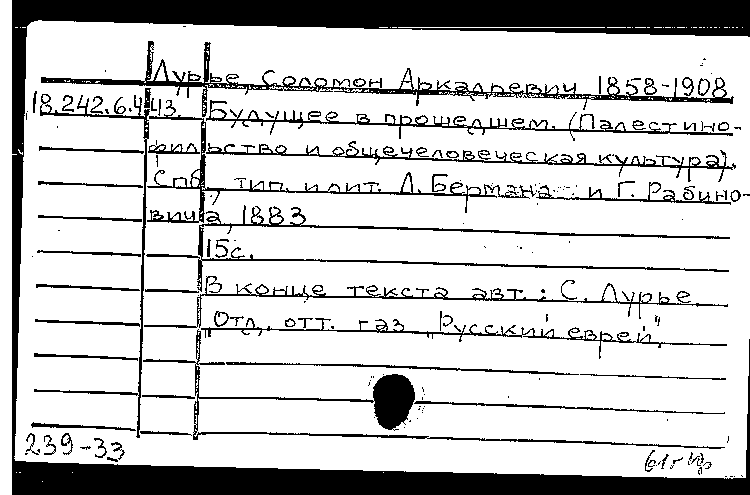 Лурье, Соломон Аркадьевич, 1858-1908.
18.242.6.443. Будущее в прошедшем. (Палестино-
фильство и общечеловеческая культура).
Спб, тип. и лит. Л. Бермана и Г. Рабино-
вича, 1883
15с.
В конце текста авт.: С. Лурье.
Отд. отт. газ „Русский еврей”.
239-33